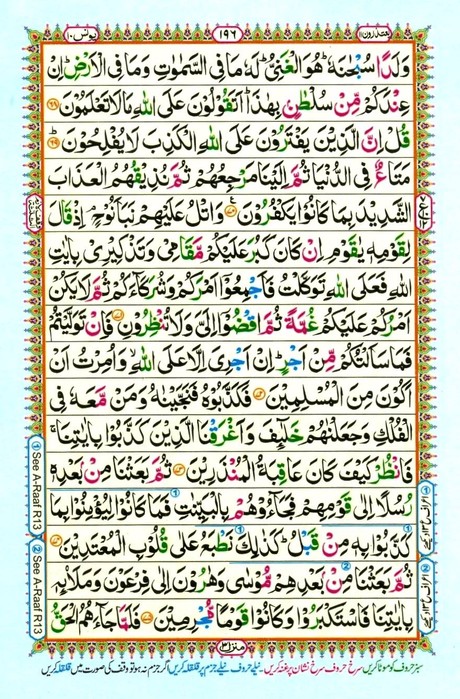 یونس ۱۰ ۱۹۶ یعتذرون ۱۱
وَلَدًا سُبْحٰنَهٗ ؕ هُوَ الْغَنِیُّ ؕ لَهٗ مَا فِی السَّمٰوٰتِ وَمَا فِی الْاَرْضِ ؕ اِنْ
عِنْدَكُمْ مِّنْ سُلْطٰنٍۭ بِهٰذَا ؕ اَتَقُوْلُوْنَ عَلَی اللّٰهِ مَا لَا تَعْلَمُوْنَ ﴿۶۸﴾
قُلْ اِنَّ الَّذِیْنَ یَفْتَرُوْنَ عَلَی اللّٰهِ الْكَذِبَ لَا یُفْلِحُوْنَ ؕ﴿۶۹﴾
مَتَاعٌ فِی الدُّنْیَا ثُمَّ اِلَیْنَا مَرْجِعُهُمْ ثُمَّ نُذِیْقُهُمُ الْعَذَابَ
الشَّدِیْدَ بِمَا كَانُوْا یَكْفُرُوْنَ ﴿۷۰﴾ وَاتْلُ عَلَیْهِمْ نَبَاَ نُوْحٍ ۘ اِذْ قَالَ
لِقَوْمِهٖ یٰقَوْمِ اِنْ كَانَ كَبُرَ عَلَیْكُمْ مَّقَامِیْ وَتَذْكِیْرِیْ بِاٰیٰتِ
اللّٰهِ فَعَلَی اللّٰهِ تَوَكَّلْتُ فَاَجْمِعُوْۤا اَمْرَكُمْ وَشُرَكَآءَكُمْ ثُمَّ لَا یَكُنْ
اَمْرُكُمْ عَلَیْكُمْ غُمَّةً ثُمَّ اقْضُوْۤا اِلَیَّ وَلَا تُنْظِرُوْنِ ﴿۷۱﴾ فَاِنْ تَوَلَّیْتُمْ
فَمَا سَاَلْتُكُمْ مِّنْ اَجْرٍ ؕ اِنْ اَجْرِیَ اِلَّا عَلَی اللّٰهِ ۙ وَاُمِرْتُ اَنْ
اَكُوْنَ مِنَ الْمُسْلِمِیْنَ ﴿۷۲﴾ فَكَذَّبُوْهُ فَنَجَّیْنٰهُ وَمَنْ مَّعَهٗ فِی
الْفُلْكِ وَجَعَلْنٰهُمْ خَلٰٓئِفَ وَاَغْرَقْنَا الَّذِیْنَ كَذَّبُوْا بِاٰیٰتِنَا ۚ
فَانْظُرْ كَیْفَ كَانَ عَاقِبَةُ الْمُنْذَرِیْنَ ﴿۷۳﴾ ثُمَّ بَعَثْنَا مِنْۢ بَعْدِهٖ
رُسُلًا اِلٰی قَوْمِهِمْ فَجَآءُوْهُمْ بِالْبَیِّنٰتِ فَمَا كَانُوْا لِیُؤْمِنُوْا بِمَا
كَذَّبُوْا بِهٖ مِنْ قَبْلُ ؕ كَذٰلِكَ نَطْبَعُ عَلٰی قُلُوْبِ الْمُعْتَدِیْنَ ﴿۷۴﴾
ثُمَّ بَعَثْنَا مِنْۢ بَعْدِهِمْ مُّوْسٰی وَهٰرُوْنَ اِلٰی فِرْعَوْنَ وَمَلَا۟ئِهٖ
بِاٰیٰتِنَا فَاسْتَكْبَرُوْا وَكَانُوْا قَوْمًا مُّجْرِمِیْنَ ﴿۷۵﴾ فَلَمَّا جَآءَهُمُ الْحَقُّ
① See A-Raaf R13
② See A-Raaf R13
منزل ۳
سبز حروف کو موٹا کریں سرخ حروف سرخ نشان پر غنہ کریں۔ نیلے حروف نیلے جزم پر قلقلہ کریں اگر جزم نہ ہو تو وقف کی صورت میں قلقلہ کریں